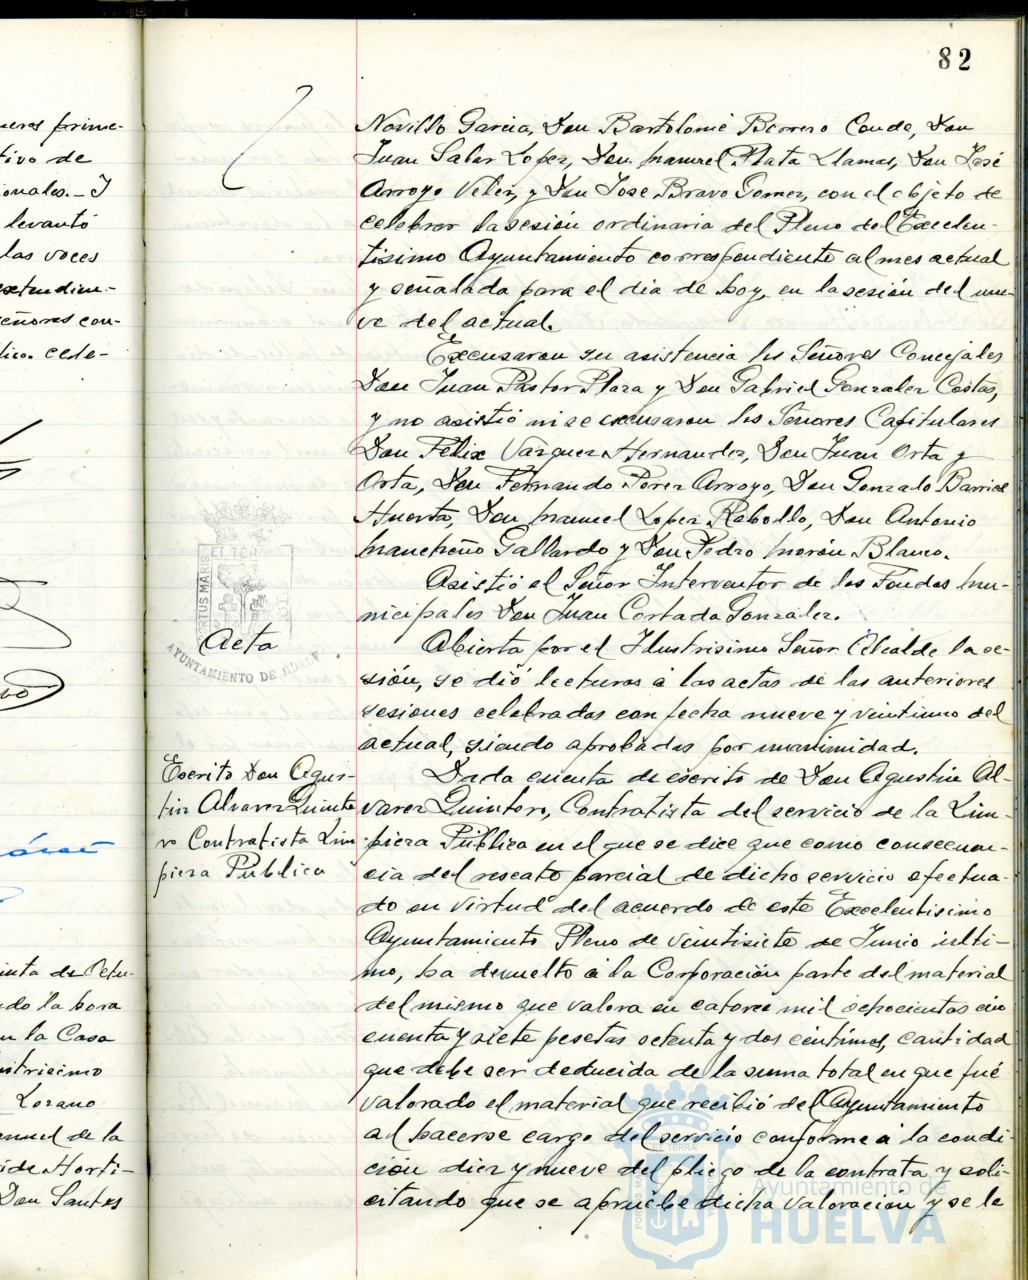 82
Novillo Garcia, Don Bartolomé Borrero Conde, Don
Juan Salas Lopez, Don Manuel Plata Llamas, Don José
Arroyo Velez, y Don Jose Bravo Gomez, con el objeto de
celebrar la sesión ordinaria del Pleno del Excelen-
tisimo Ayuntamiento correspondiente al mes actual
y señalada para el dia de hoy, en la sesión del nue-
ve del actual.
Excusaron su asistencia los Señores Concejales
Don Juan Pastor Plaza y Don Gabriel Gonzalez Costas,
y no asistió ni se excusaron los Señores Capitulares
Don Félix Vazquez Hernandez, Don Juan Orta y
Orta, Don Fernando Perez Arroyo, Don Gonzalo Barrios
Huerta, Don Manuel Lopez Rebollo, Don Antonio
Mancheño Gallardo y Don Pedro Morón Blanco.
Asistió el Señor Interventor de los Fondos Mu-
nicipales Don Juan Cortada Gonzalez.
Acta
Abierta por el Ilustrisimo Señor Alcalde la se-
sión, se dió lecturas a las actas de las anteriores
sesiones celebradas con fecha nueve y veintiuno del
actual, siendo aprobadas por unanimidad.
Escrito Don Agus-
tin Alvarez Quinte
ro Contratista Lim
pieza Publica
Dada cuenta de escrito de Don Agustin Al-
varez Quintero, Contratista del servicio de la Lim-
pieza Pública en el que se dice que como consecuen-
cia del rescate parcial de dicho servicio efectua-
do en virtud del acuerdo de este Excelentisimo
Ayuntamiento Pleno de veintisiete de Junio ulti-
mo, ha devuelto a la Corporación parte del material
del mismo que valora en catorce mil setecientas cin
cuenta y siete pesetas setenta y dos centimos, cantidad
que debe ser deducida de la suma total en que fué
valorado el material que recibió del Ayuntamiento
al hacerse cargo del servicio conforme a la condi-
ción diez y nueve del pliego de la contrata y soli-
citando que se apruebe dicha valoración y se le
ueras prime-
tivo de
onales.- Y
levantó
las voces
extendien-
eñores con-
lico. cele-
inta de Octu-
ndo la hora
n la Casa
ustrisimo
Lozano
anuel de la
ide Horti-
Don Santos
AYUNTAMIENTO DE HUELVA
Ayuntamiento de
HUELVA